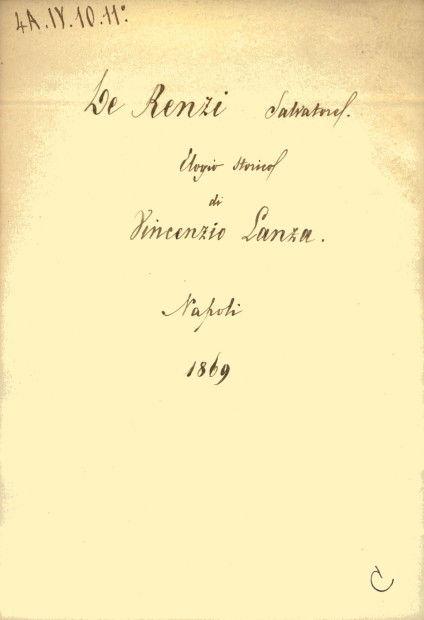 4A.IV.10.11°.
De Renzi Salvatore.
Elogio storico
di
Vincenzio Lanza.
Napoli
1869
C